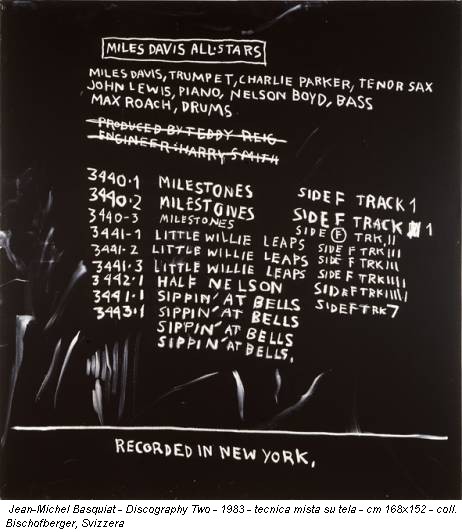 MILES DAVIS ALL·STARS
MILES DAVIS, TRUMPET, CHARLIE PARKER, TENOR SAX
JOHN LEWIS, PIANO, NELSON BOYD, BASS
MAX ROACH, DRUMS
PRODUCED BY TEDDY REIG
ENGINEER: HARRY SMITH
3440·1 MILESTONES SIDE F TRACK 1
3440·2 MILESTONES SIDE F TRACK 1
3440-3 MILESTONES SIDE F TRK II
3441-1 LITTLE WILLIE LEAPS SIDE F TRK III
3441·2 LITTLE WILLIE LEAPS SIDE F TRK III
3441·3 LITTLE WILLIE LEAPS SIDE F TRK IIII
3442·1 HALF NELSON SIDE F TRK IIIII
3441·1 SIPPIN' AT BELLS SIDE F TRK 7
3443·1 SIPPIN' AT BELLS
SIPPIN' AT BELLS
SIPPIN' AT BELLS.
RECORDED IN NEW YORK,
Jean-Michel Basquiat - Discography Two - 1983 - tecnica mista su tela - cm 168x152 - coll.
Bischofberger, Svizzera